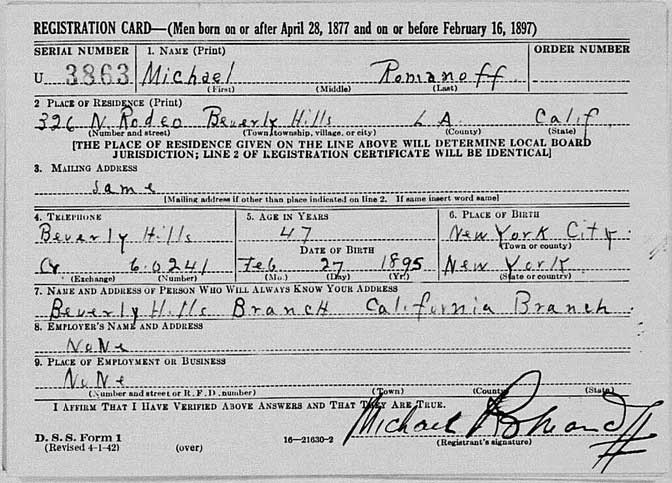 REGISTRATION CARD—(Men born on or after April 28, 1877 and on or before February 16, 1897)
SERIAL NUMBER 1. NAME (Print) ORDER NUMBER
U 3863 Michael Romanoff
(First) (Middle) (Last)
2 PLACE OF RESIDENCE (Print)
326 N. Rodeo Beverly Hills L A Calif
(Number and street) (Town, township, village, or city) (County) (State)
[THE PLACE OF RESIDENCE GIVEN ON THE LINE ABOVE WILL DETERMINE LOCAL BOARD
JURISDICTION; LINE 2 OF REGISTRATION CERTIFICATE WILL BE IDENTICAL]
3. MAILING ADDRESS
same
[Mailing address if other than place indicated on line 2. If same insert word same]
4. TELEPHONE 5. AGE IN YEARS 6. PLACE OF BIRTH
Beverly Hills 47 New York City
DATE OF BIRTH (Town or county)
Cr 6.0241 Feb 27 1895 New York
(Exchange) (Number) (Mo.) (Day) (Yr.) (State or country)
7. NAME AND ADDRESS OF PERSON WHO WILL ALWAYS KNOW YOUR ADDRESS
Beverly Hills Branch California Branch
8. EMPLOYER'S NAME AND ADDRESS
None
9. PLACE OF EMPLOYMENT OR BUSINESS
None
(Number and street or R. F. D. number) (Town) (County) (State)
I AFFIRM THAT I HAVE VERIFIED ABOVE ANSWERS AND THAT THEY ARE TRUE.
Michael Romanoff
D. S. S. Form 1
(Revised 4-1-42) (over) 16—21630-2 (Registrant's signature)